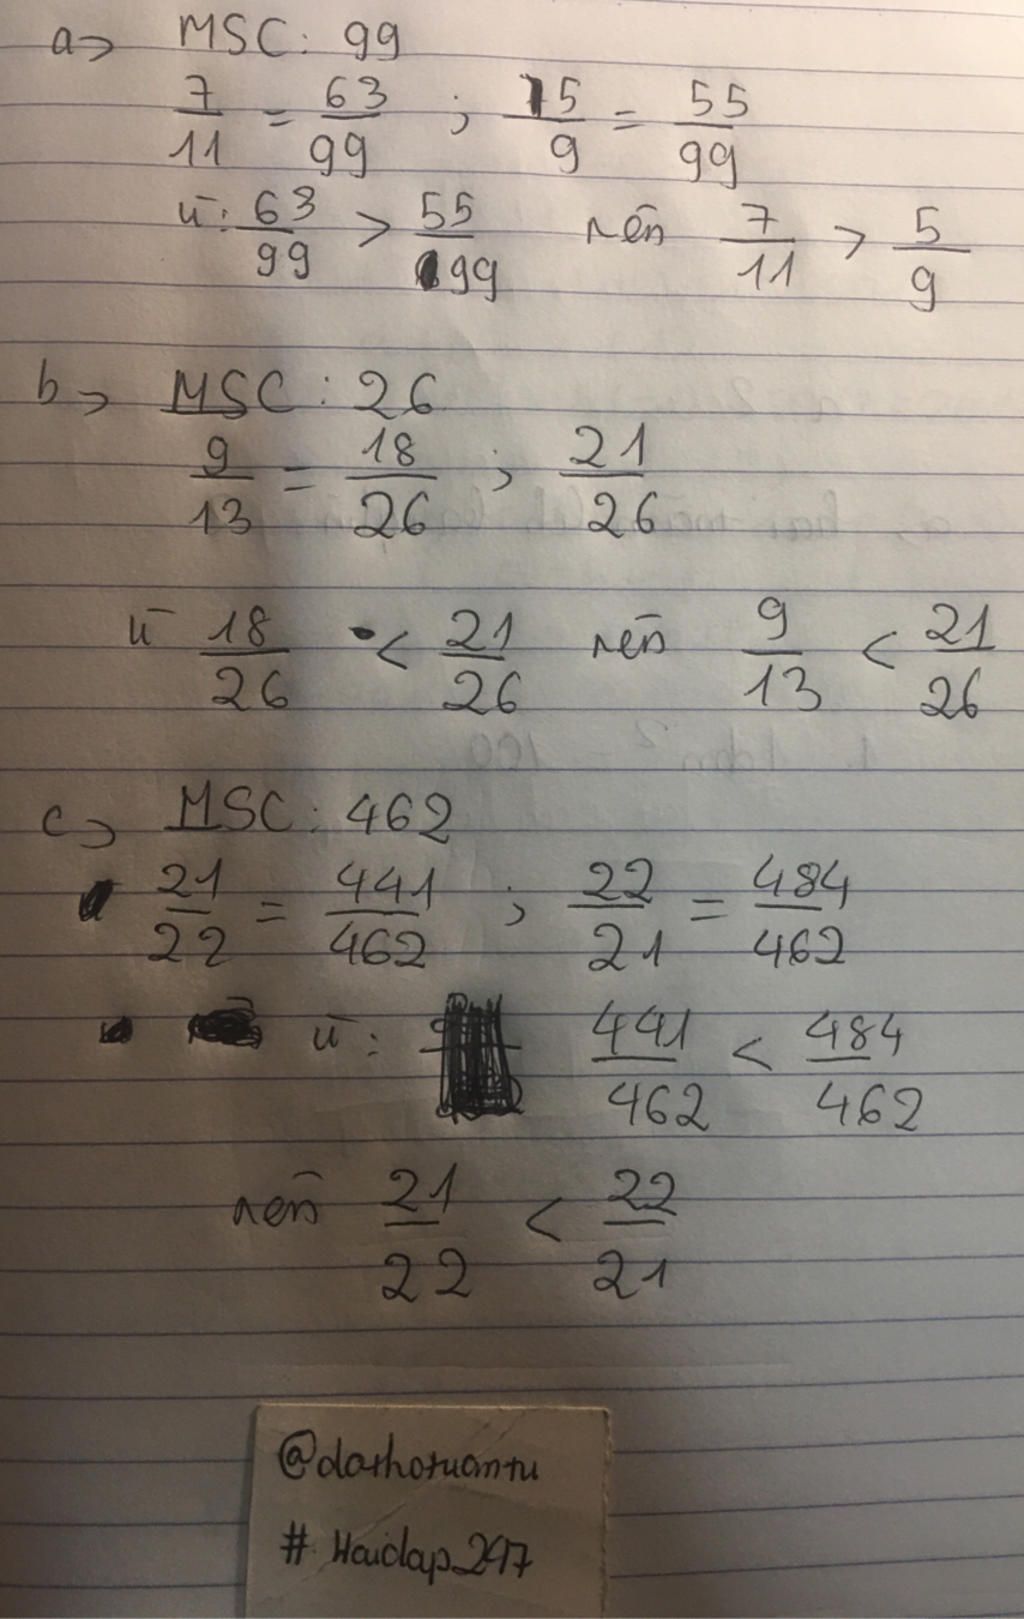 a> MSC: 99
7/11 = 63/99 ; 5/9 = 55/99
vì: 63/99 > 55/99 nên 7/11 > 5/9
b> MSC: 26
9/13 = 18/26 ; 21/26
vì 18/26 < 21/26 nên 9/13 < 21/26
c> MSC: 462
21/22 = 441/462 ; 22/21 = 484/462
vì: 441/462 < 484/462
nên 21/22 < 22/21
@dathotuantu
# Hoidap_247